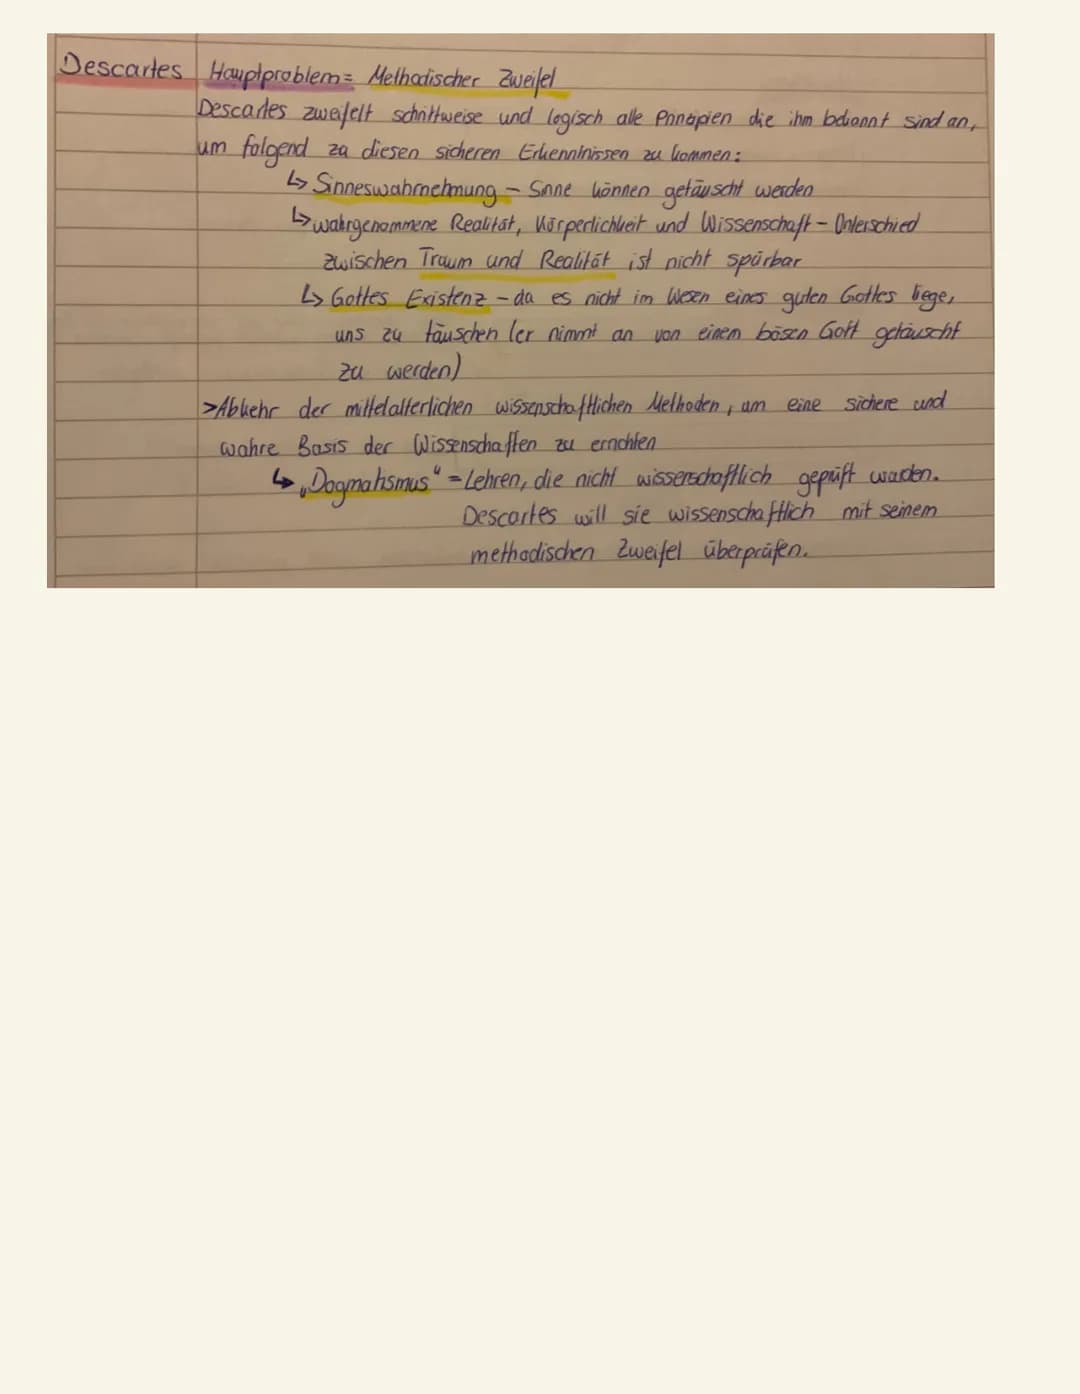 Descartes Hauptproblem = Methodischer Zweifel
Descartes zweifelt schrittweise und logisch alle Prinzipien die ihm bekannt sind an,
um folgend zu diesen sicheren Erkenntnissen zu kommen:
↳ Sinneswahrnehmung - Sinne können getäuscht werden
↳ wahrgenommene Realität, Körperlichkeit und Wissenschaft - Unterschied
zwischen Traum und Realität ist nicht spürbar
↳ Gottes Existenz - da es nicht im Wesen eines guten Gottes liege,
uns zu täuschen (er nimmt an von einem bösen Gott getäuscht
zu werden)
>Abkehr der mittelalterlichen wissenschaftlichen Methoden, um eine sichere und
wahre Basis der Wissenschaften zu errichten
↳ „Dogmatismus“ = Lehren, die nicht wissenschaftlich geprüft wurden.
Descartes will sie wissenschaftlich mit seinem
methodischen Zweifel überprüfen.